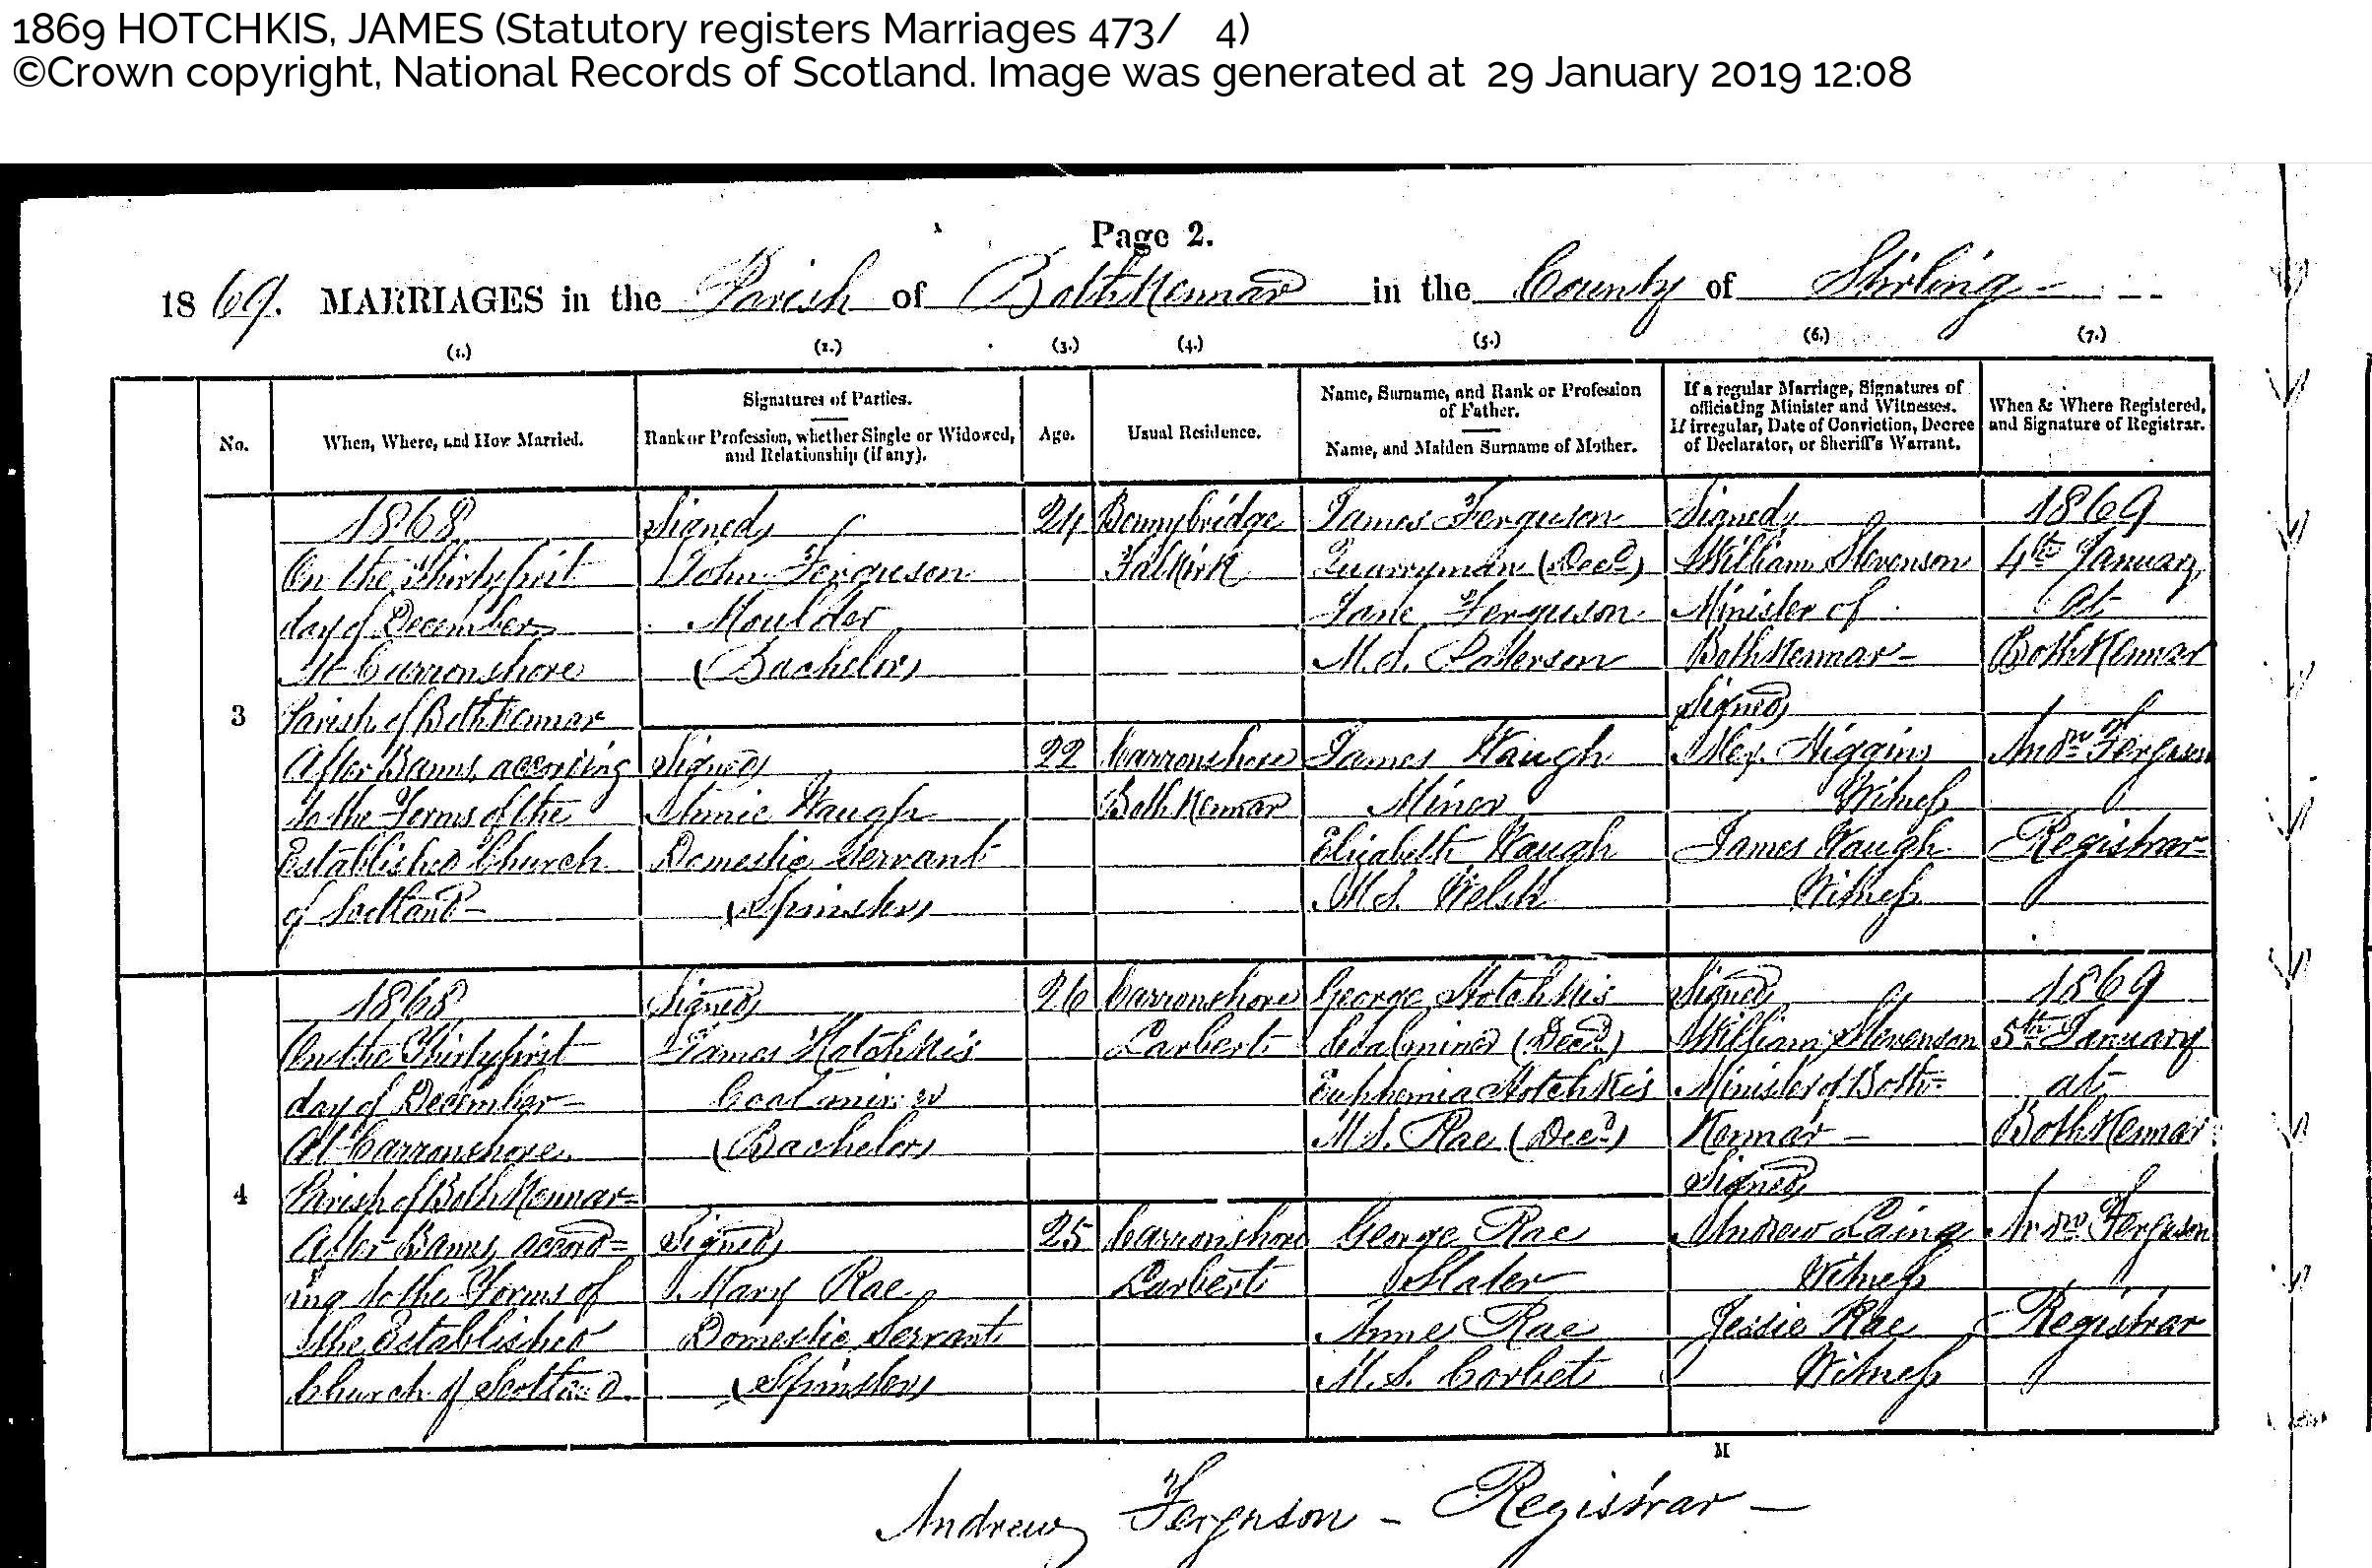 1869 HOTCHKIS, JAMES (Statutory registers Marriages 473/ 4)
©Crown copyright, National Records of Scotland. Image was generated at 29 January 2019 12:08
Page 2.
1869. MARRIAGES in the Parish of Bothkennar in the County of Stirling
(1.) (2.) (3.) (4.) (5.) (6.) (7.)
No.
When, Where, and How Married.
Signatures of Parties.
Rank or Profession, whether Single or Widowed,
and Relationship (if any).
Age.
Usual Residence.
Name, Surname, and Rank or Profession
of Father.
Name, and Maiden Surname of Mother.
If a regular Marriage, Signatures of
officiating Minister and Witnesses.
If irregular, Date of Conviction, Decree
of Declarator, or Sheriff's Warrant.
When & Where Registered,
and Signature of Registrar.
3
1868
On the Thirty first
day of December
At Carronshore
Parish of Bothkennar
After Banns, according
to the Forms of the
Established Church
of Scotland
(Signed)
John Ferguson
Moulder
(Bachelor)
(Signed)
Annie Waugh
Domestic Servant
(Spinster)
24
22
Bonnybridge
Falkirk
Carronshore
Bothkennar
James Ferguson
Quarryman (Decd)
Jane Ferguson
M.S. Paterson
James Waugh
Miner
Elizabeth Waugh
M.S. Welsh
(Signed)
William Stevenson
Minister of
Bothkennar
(Signed)
Alex. Higgins
Witness
James Waugh
Witness
1869
4th January
At
Bothkennar
Andw Ferguson
Registrar
4
1868
On the Thirty first
day of December
At Carronshore
Parish of Bothkennar
After Banns, accord=
ing to the Forms of
the Established
Church of Scotland.
(Signed)
James Hotchkis
Coal miner
(Bachelor)
(Signed)
Mary Rae
Domestic Servant
(Spinster)
26
25
Carronshore
Larbert
Carronshore
Larbert
George Hotchkis
Coalminer (Decd)
Euphemia Hotchkis
M.S. Rae (Decd)
George Rae
Slater
Anne Rae
M.S. Corbet
(Signed)
William Stevenson
Minister of Both=
kennar
(Signed)
Andrew Laing
Witness
Jessie Rae
Witness
1869
5th January
at
Bothkennar
Andw Ferguson
Registrar
M
Andrew Ferguson - Registrar -